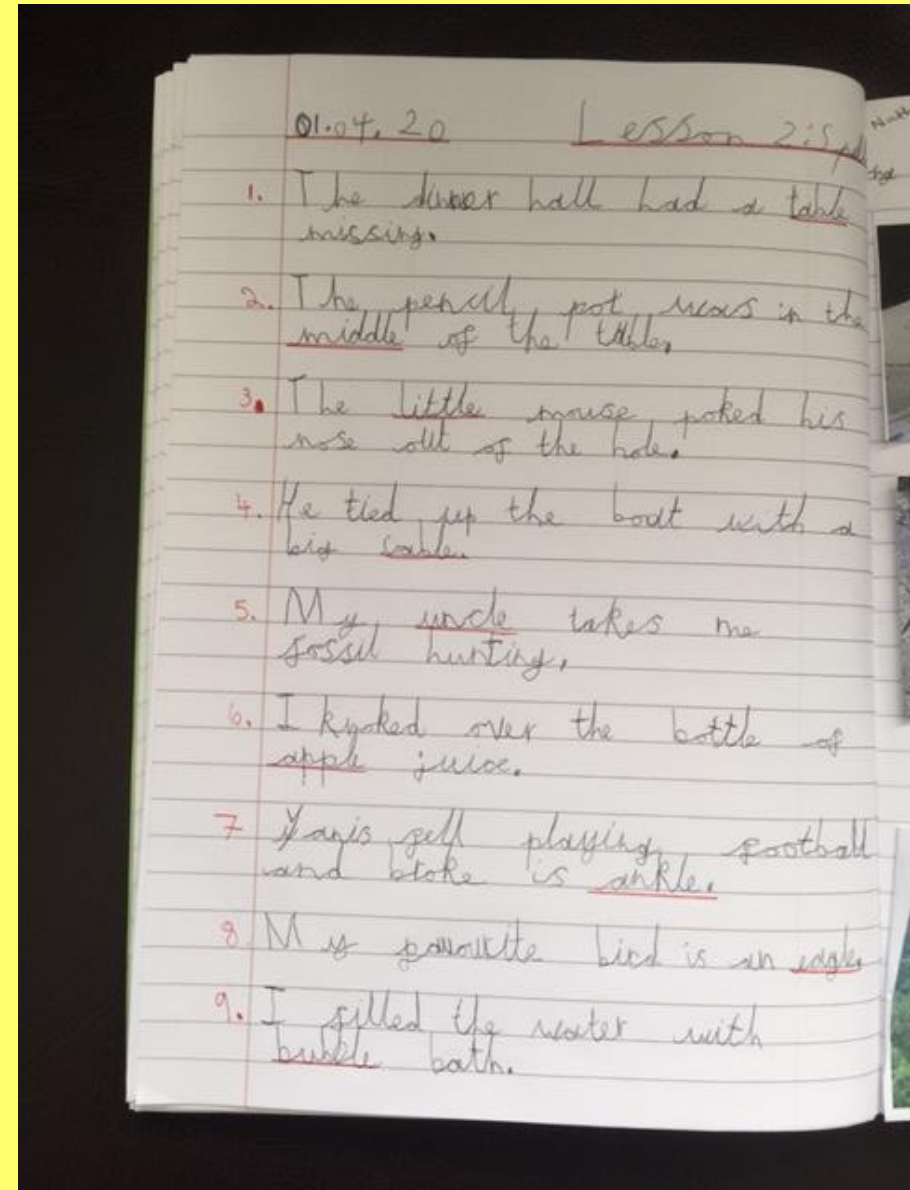 01.04.20 Lesson 2: Sp
1. The dinner hall had a table
missing.
2. The pencil pot was in the
middle of the table.
3. The little mouse poked his
nose out of the hole.
4. He tied up the boat with a
big cable.
5. My uncle takes me
fossil hunting.
6. I knoked over the bottle of
apple juice.
7 Yanis fell playing football
and broke is ankle.
8. My favourite bird is an eagle
9. I filled the water with
bubble bath.